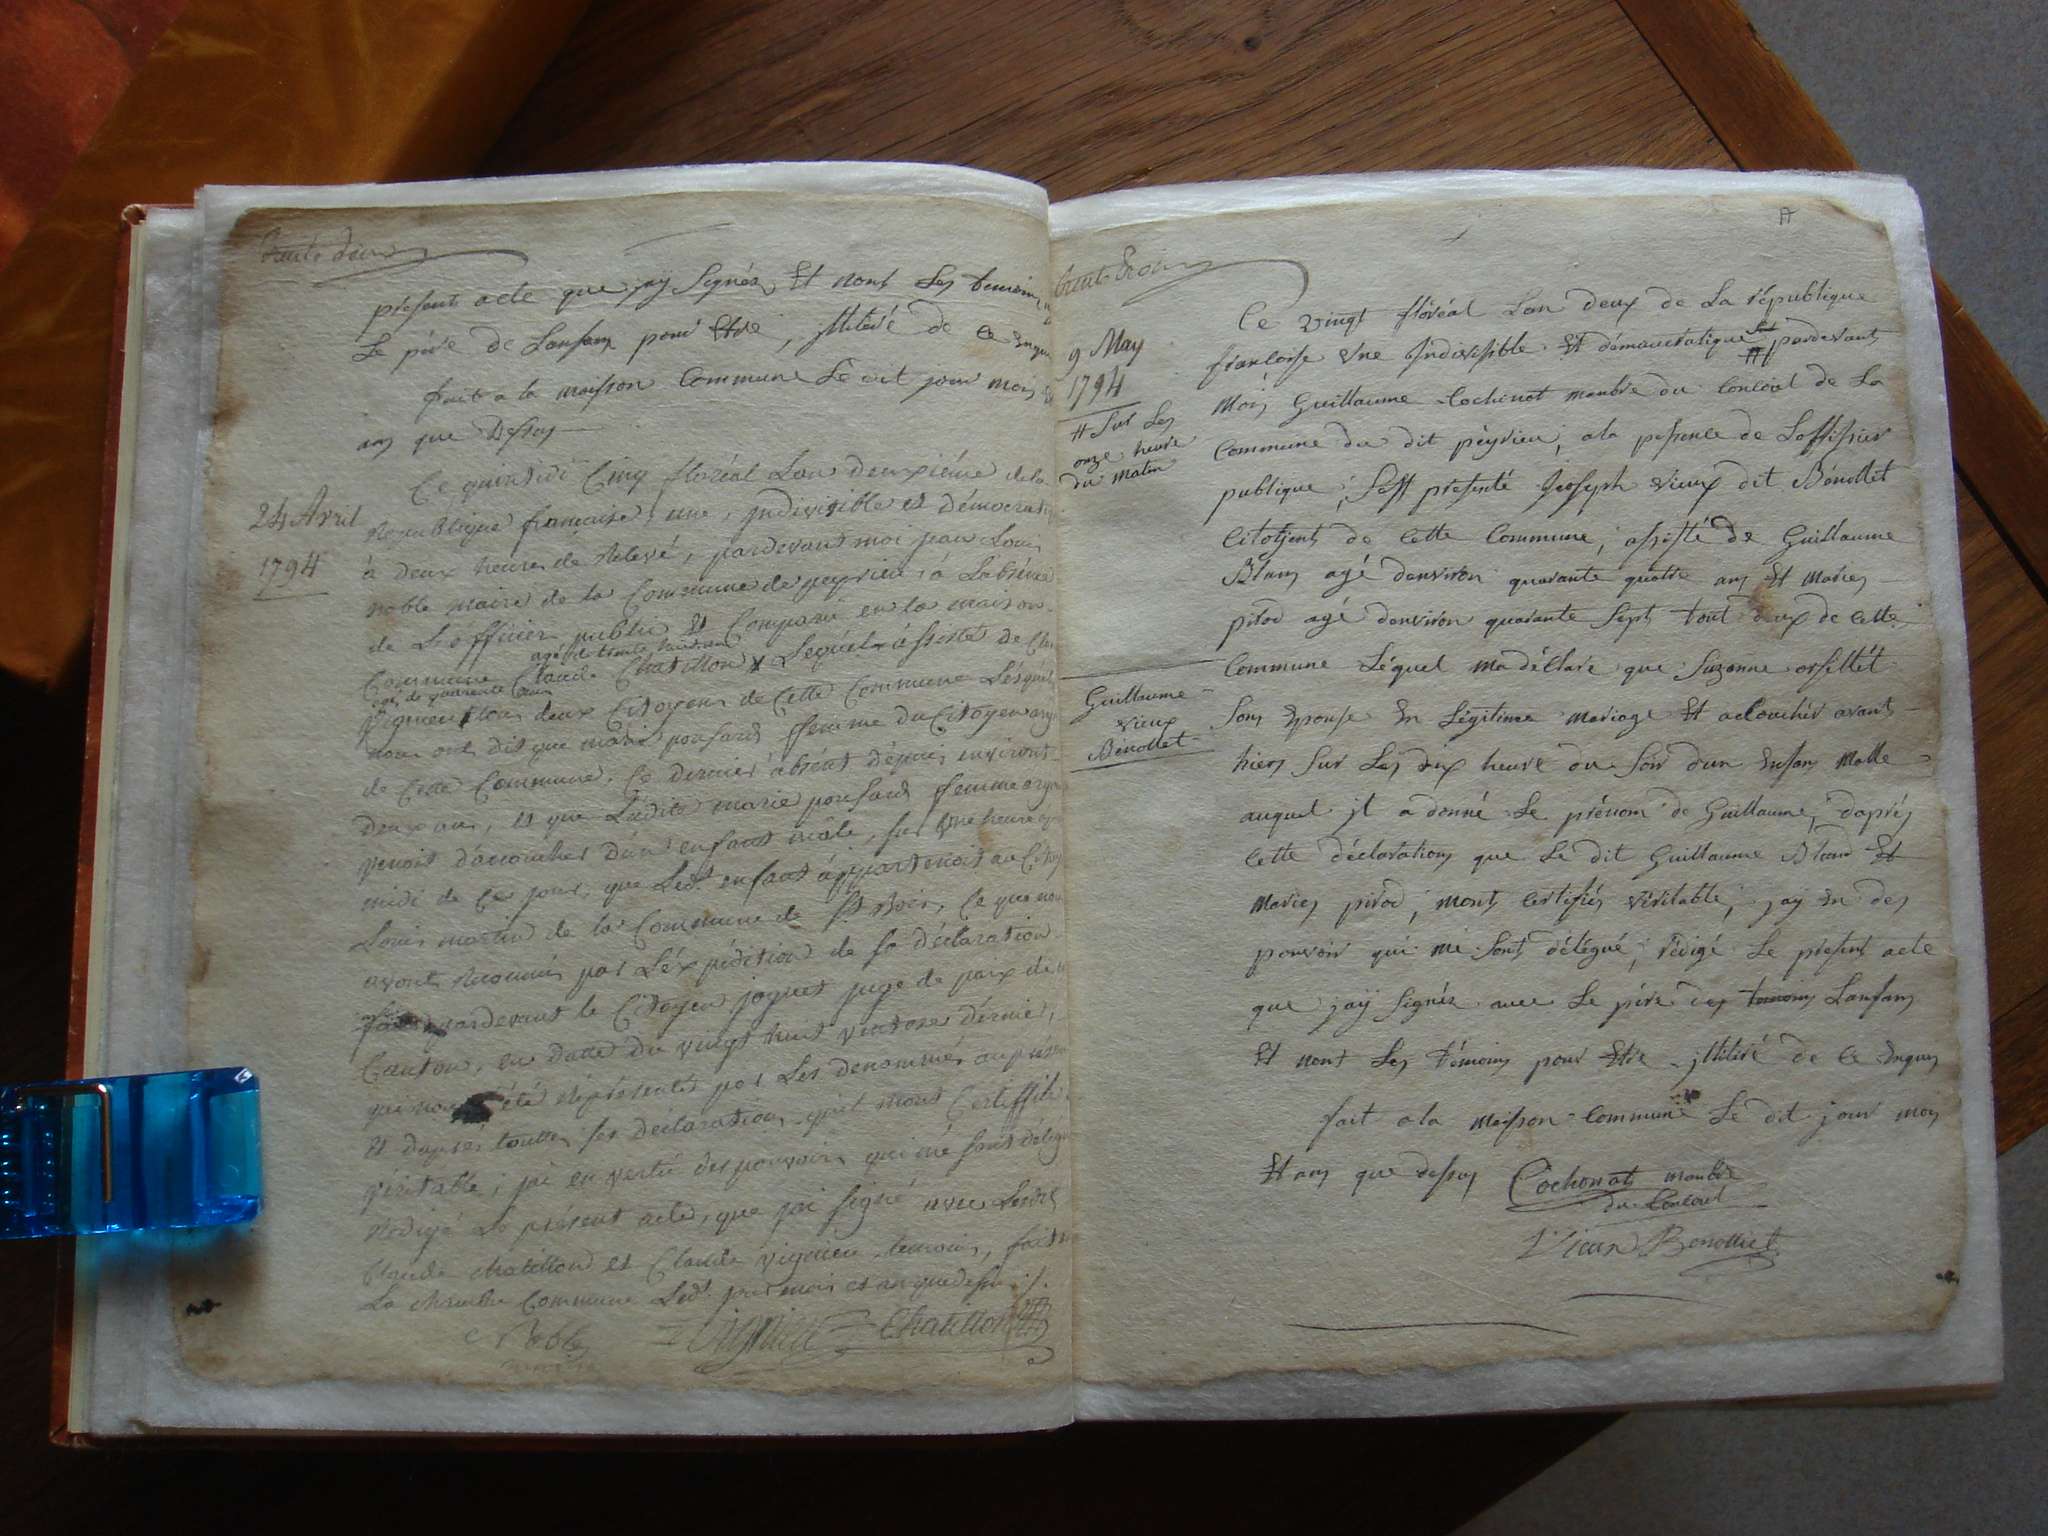 trente deux
present acte que jay Signéz Et nont Les temoins
Le père de Lanfan pour Etre, jlliteré de ce Enquis
fait a la maison Commune Le dit jour mois Et
an que Dessus
24 Avril
1794
Ce quintidi Cinq floréal L'an deuxiéme de la
République française, une, jndivisible et démocrati
à deux heures de Relevé, pardevant moi jean Louis
noble maire de la Commune de peyrieu, à L'absence
de L'officier public Et Comparu en la maison
agé de trente huit ans
Commune Claude Chatillon Lequel assisté de Clau
agé de quarente ans
Vignieu tous deux Citoyens de Cette Commune Lésquels
nous ont dit que marie ponsard femme du Citoyen
de Cette Commune, Ce dernier absént dépuis environt
deux ans, et que Ladite marie ponsard femme
venoit d'acoucher d'un enfant mâle, sur Une heure
midi de Ce jour, que Led.t enfant appartenoit au Citoy
Louis martin de la Commune de St Bois, Ce que nous
avons reconnu par L'éxpédition de sa déclaration
pardevant le Citoyen juge de paix de
Canton, en datte du vingt huit ventose dernier,
qui nous été répresentée par Les denommés au présen
Et d'aprés toutte ses déclaration qu'il mont Certiffiée
véritable, j'ai en vertu des pouvoirs qui me sont délégu
Rédigé Le présent acte, que j'ai signé avec Lesdits
Claude chatillon et Claude vignieu temoins, fait
La chambre Commune Led.t jour mois et an que dessus ./.
Noble
maire
Vignieu
Chatillon
trente trois
9 May
1794
# Sur Les
onze heure
du matin
Ce vingt floréal Lan deux de La république
françoise une Indivisible Et démocratique # pardevant
Moy Guillaume Cochonat membre du Conseil de La
Commune du dit pèyrieu, a la presence de Loffissier
publique, Sest presenté Joseph vieux dit Bénollet
Citoÿens de Cette Commune, assisté de Guillaume
Blanc agé denviron quarante quatre ans Et Maries
pirod agé denviron quarante Sept tout deux de Cette
Commune Léquel ma déclare que Suzanne orsellét
Guillaume
vieux
Bénollet
Son Epouse En Légitime mariage Et accouchéz avant
hiers Sur Les dix heure du Soir dun Enfans Malle
auquel jl a donné Le prénom de Guillaume, daprés
Cette déclarations que Le dit Guillaume Bland Et
Maries pirod, mont Certifiés véritable, jaÿ En des
pouvoir qui me sont délégué, rédigé Le present acte
que jaÿ Signéz avec Le pére des temoins Lanfans
Et nont Les témoins pour Etre jlliteré de Ce Enquis
fait a la Maison Commune Le dit jour mois
Et ans que dessus
Cochonat membre
du Conseil
Vieux Benolliet